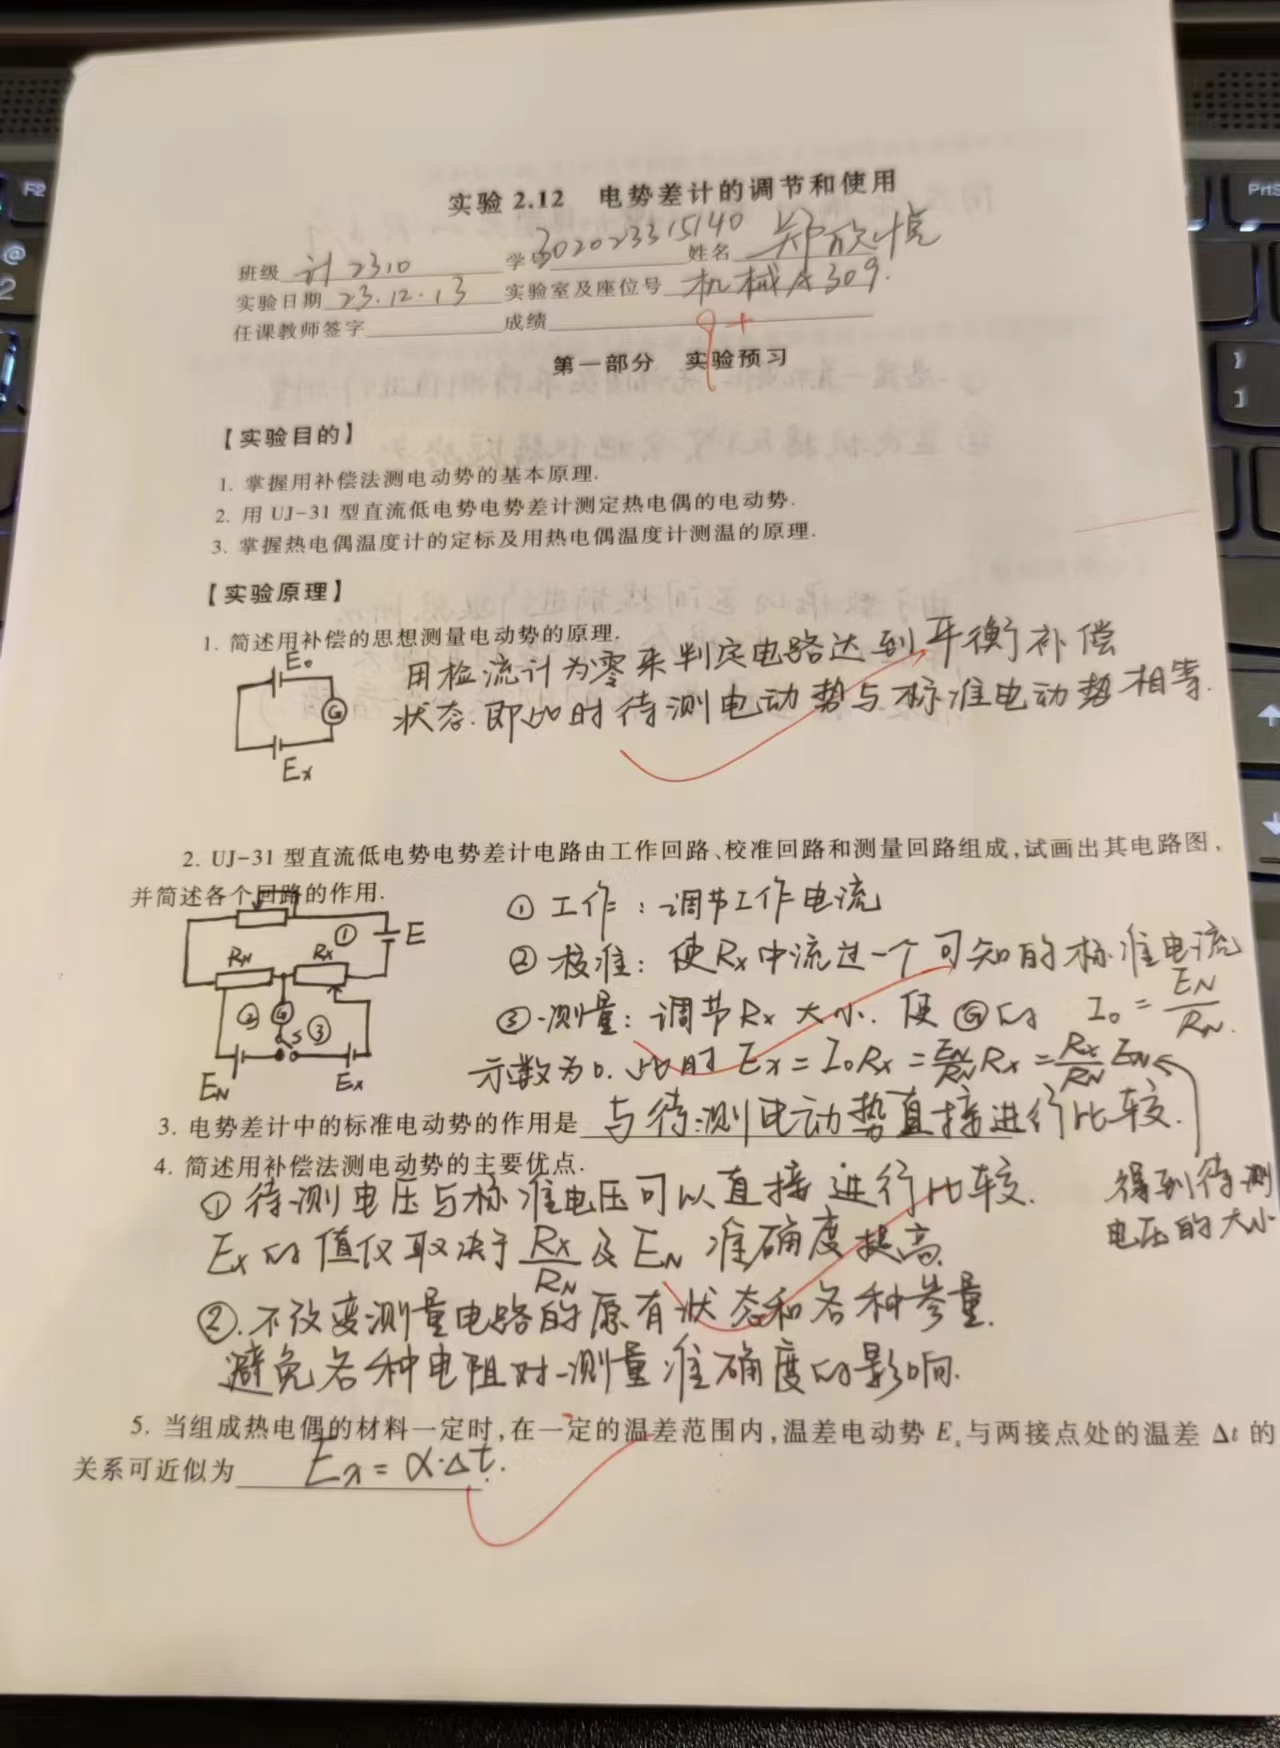 实验 2.12 电势差计的调节和使用
班级 计2310 学号 302023315140 姓名 郑欣悦
实验日期 23.12.13 实验室及座位号 机械A309.
任课教师签字 成绩 9+
第一部分 实验预习
【实验目的】
1. 掌握用补偿法测电动势的基本原理.
2. 用 UJ-31 型直流低电势电势差计测定热电偶的电动势.
3. 掌握热电偶温度计的定标及用热电偶温度计测温的原理.
【实验原理】
1. 简述用补偿的思想测量电动势的原理.
E₀
G
Ex
用检流计为零来判定电路达到平衡补偿
状态.即此时待测电动势与标准电动势相等.
2. UJ-31 型直流低电势电势差计电路由工作回路、校准回路和测量回路组成,试画出其电路图,
并简述各个回路的作用.
① E
RN Rx
② G S ③
EN Ex
① 工作: 调节工作电流
② 校准: 使Rx中流过一个可知的标准电流
I₀ = EN/RN.
③ 测量: 调节Rx大小.使Ⓖ的
示数为0.此时 Ex = I₀Rx = EN/RN Rx = Rx/RN EN
3. 电势差计中的标准电动势的作用是 与待测电动势直接进行比较.
得到待测
电压的大小
4. 简述用补偿法测电动势的主要优点.
① 待测电压与标准电压可以直接进行比较.
Ex的值仅取决于Rx/RN及EN 准确度提高.
②.不改变测量电路的原有状态和各种参量.
避免各种电阻对测量准确度的影响.
5. 当组成热电偶的材料一定时,在一定的温差范围内,温差电动势 Ex与两接点处的温差 Δt 的
关系可近似为 Ex = α·Δt.
F2
@
2
PrtS